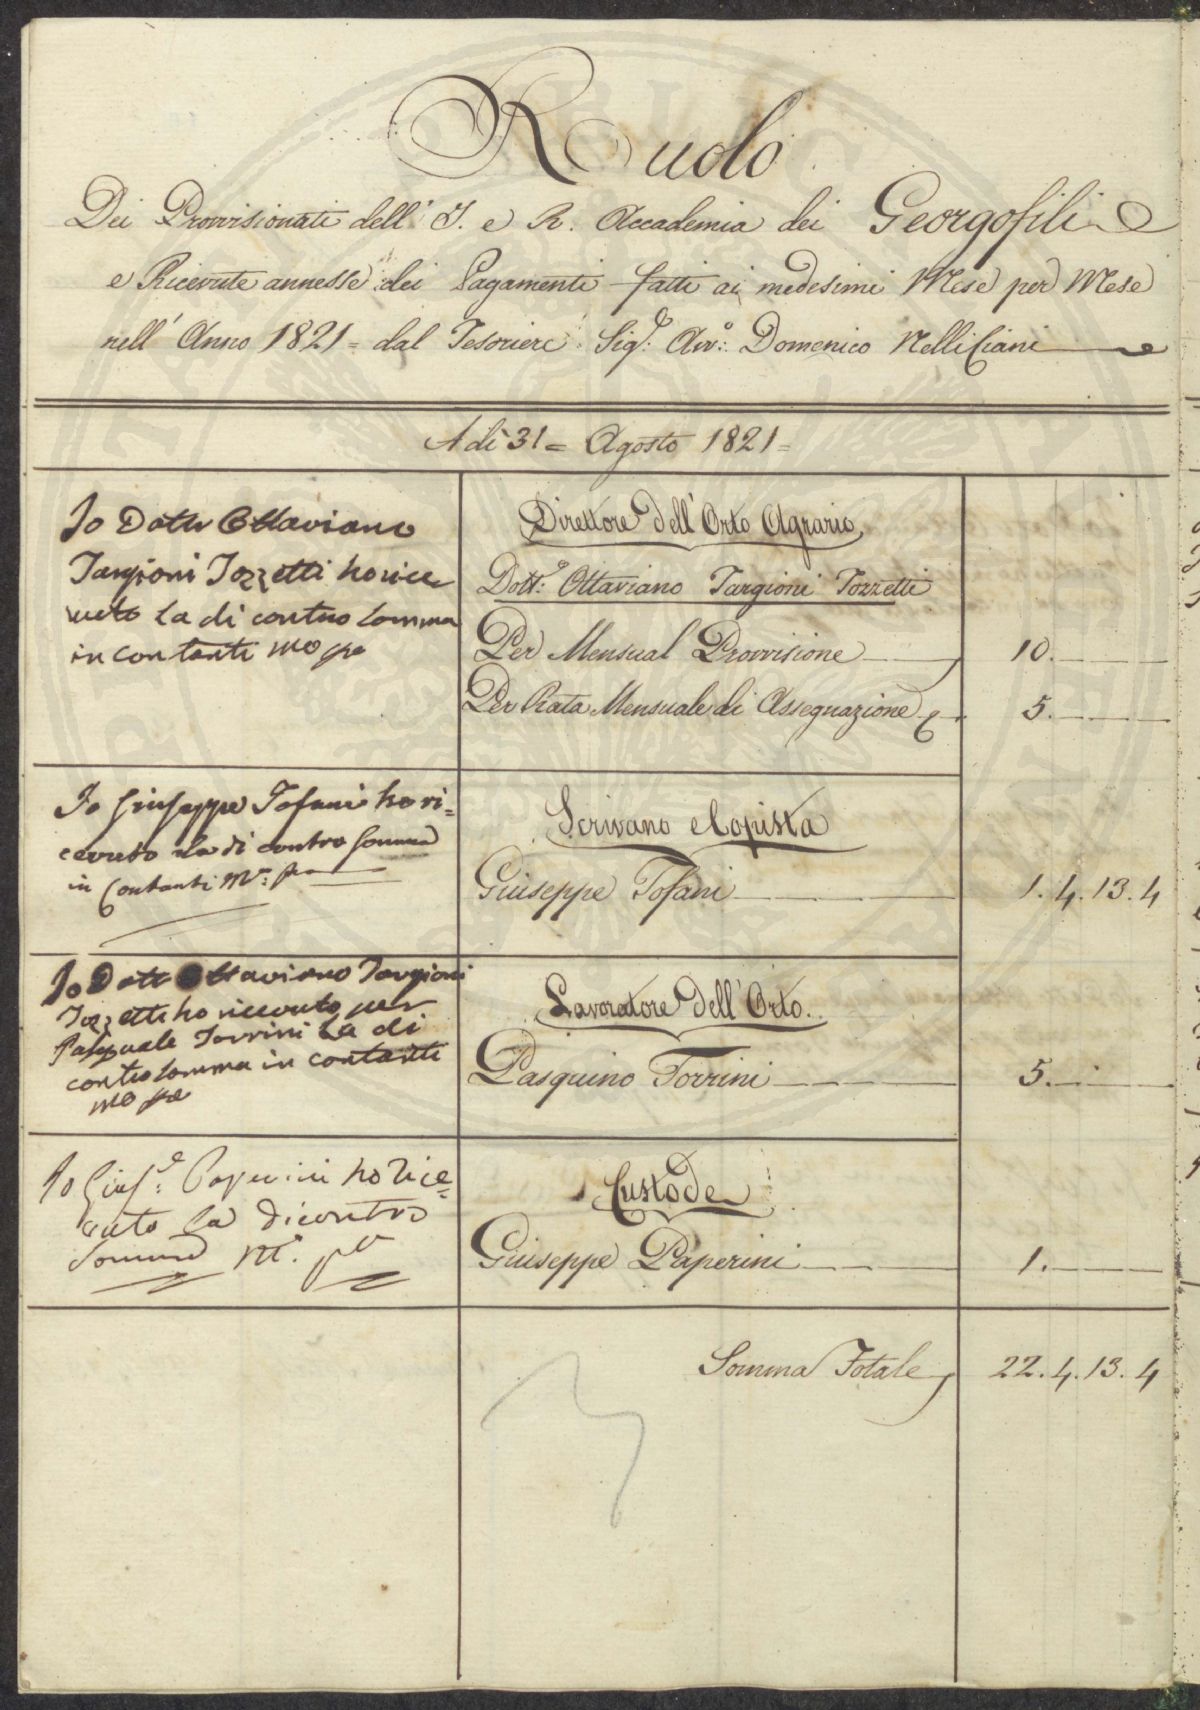 Ruolo
Dei Provvisionati dell' I. e R. Accademia dei Georgofili
e Ricevute annesse dei Pagamenti fatti ai medesimi Mese per Mese
nell' Anno 1821 = dal Tesoriere Sig.e Avv.o Domenico Nelli Ciani
A dì 31 = Agosto 1821 =
Io Dottr Ottaviano
Targioni Tozzetti ho rice
vuto la di contro somma
in contanti mo pa
Direttore dell' Orto Agrario
Dott.e Ottaviano Targioni Tozzetti
Per Mensual Provvisione 10.
Per Rata Mensuale di Assegnazione 5.
Io Giuseppe Tofani ho ri=
cevuto la di contro somma
in Contanti Mo: pa
Scrivano e Copista
Giuseppe Tofani 1. 4. 13. 4
Io Dottr Ottaviano Targioni
Tozzetti ho ricevuto per
Pasquale Torrini La di
contro somma in contanti
mo pa
Lavoratore dell' Orto.
Pasquino Torrini 5.
Io Gius.e Paperini ho rice=
vuto la dicontro
Somma M.o pa
Custode
Giuseppe Paperini 1.
Somma Totale 22. 4. 13. 4